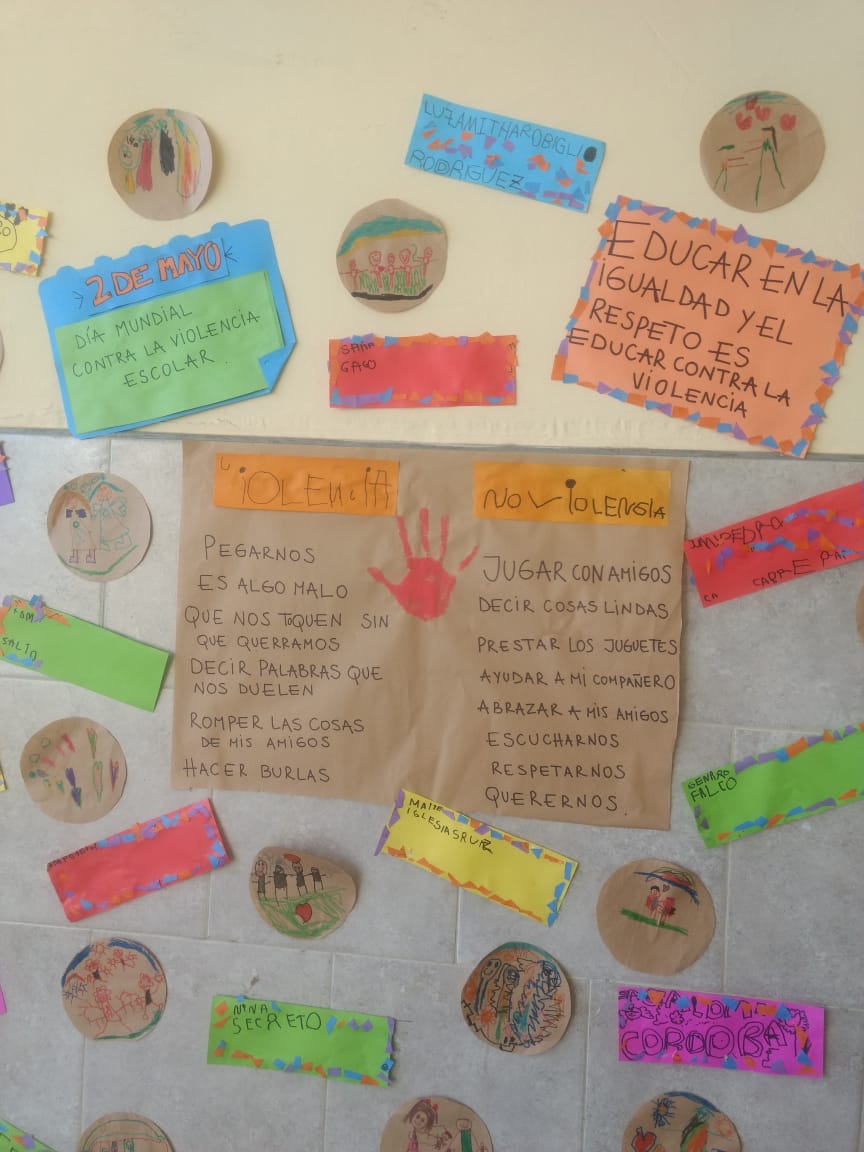 LUZAMITHAROBIGLIO
RODRIGUEZ
2 DE MAYO
DÍA MUNDIAL
CONTRA LA VIOLENCIA
ESCOLAR.
EDUCAR EN LA
IGUALDAD Y EL
RESPETO ES
EDUCAR CONTRA LA
VIOLENCIA
GAGO
VIOLENCIA
PEGARNOS
ES ALGO MALO
QUE NOS TOQUEN SIN
QUE QUERRAMOS
DECIR PALABRAS QUE
NOS DUELEN
ROMPER LAS COSAS
DE MIS AMIGOS
HACER BURLAS
NO VIOLENSIA
JUGAR CON AMIGOS
DECIR COSAS LINDAS
PRESTAR LOS JUGUETES
AYUDAR A MI COMPAÑERO
ABRAZAR A MIS AMIGOS
ESCUCHARNOS
RESPETARNOS
QUERERNOS.
SALTO
GENARO
FALCO
IGLESIASRUIZ
NINA
SECRETO
CORDOBA